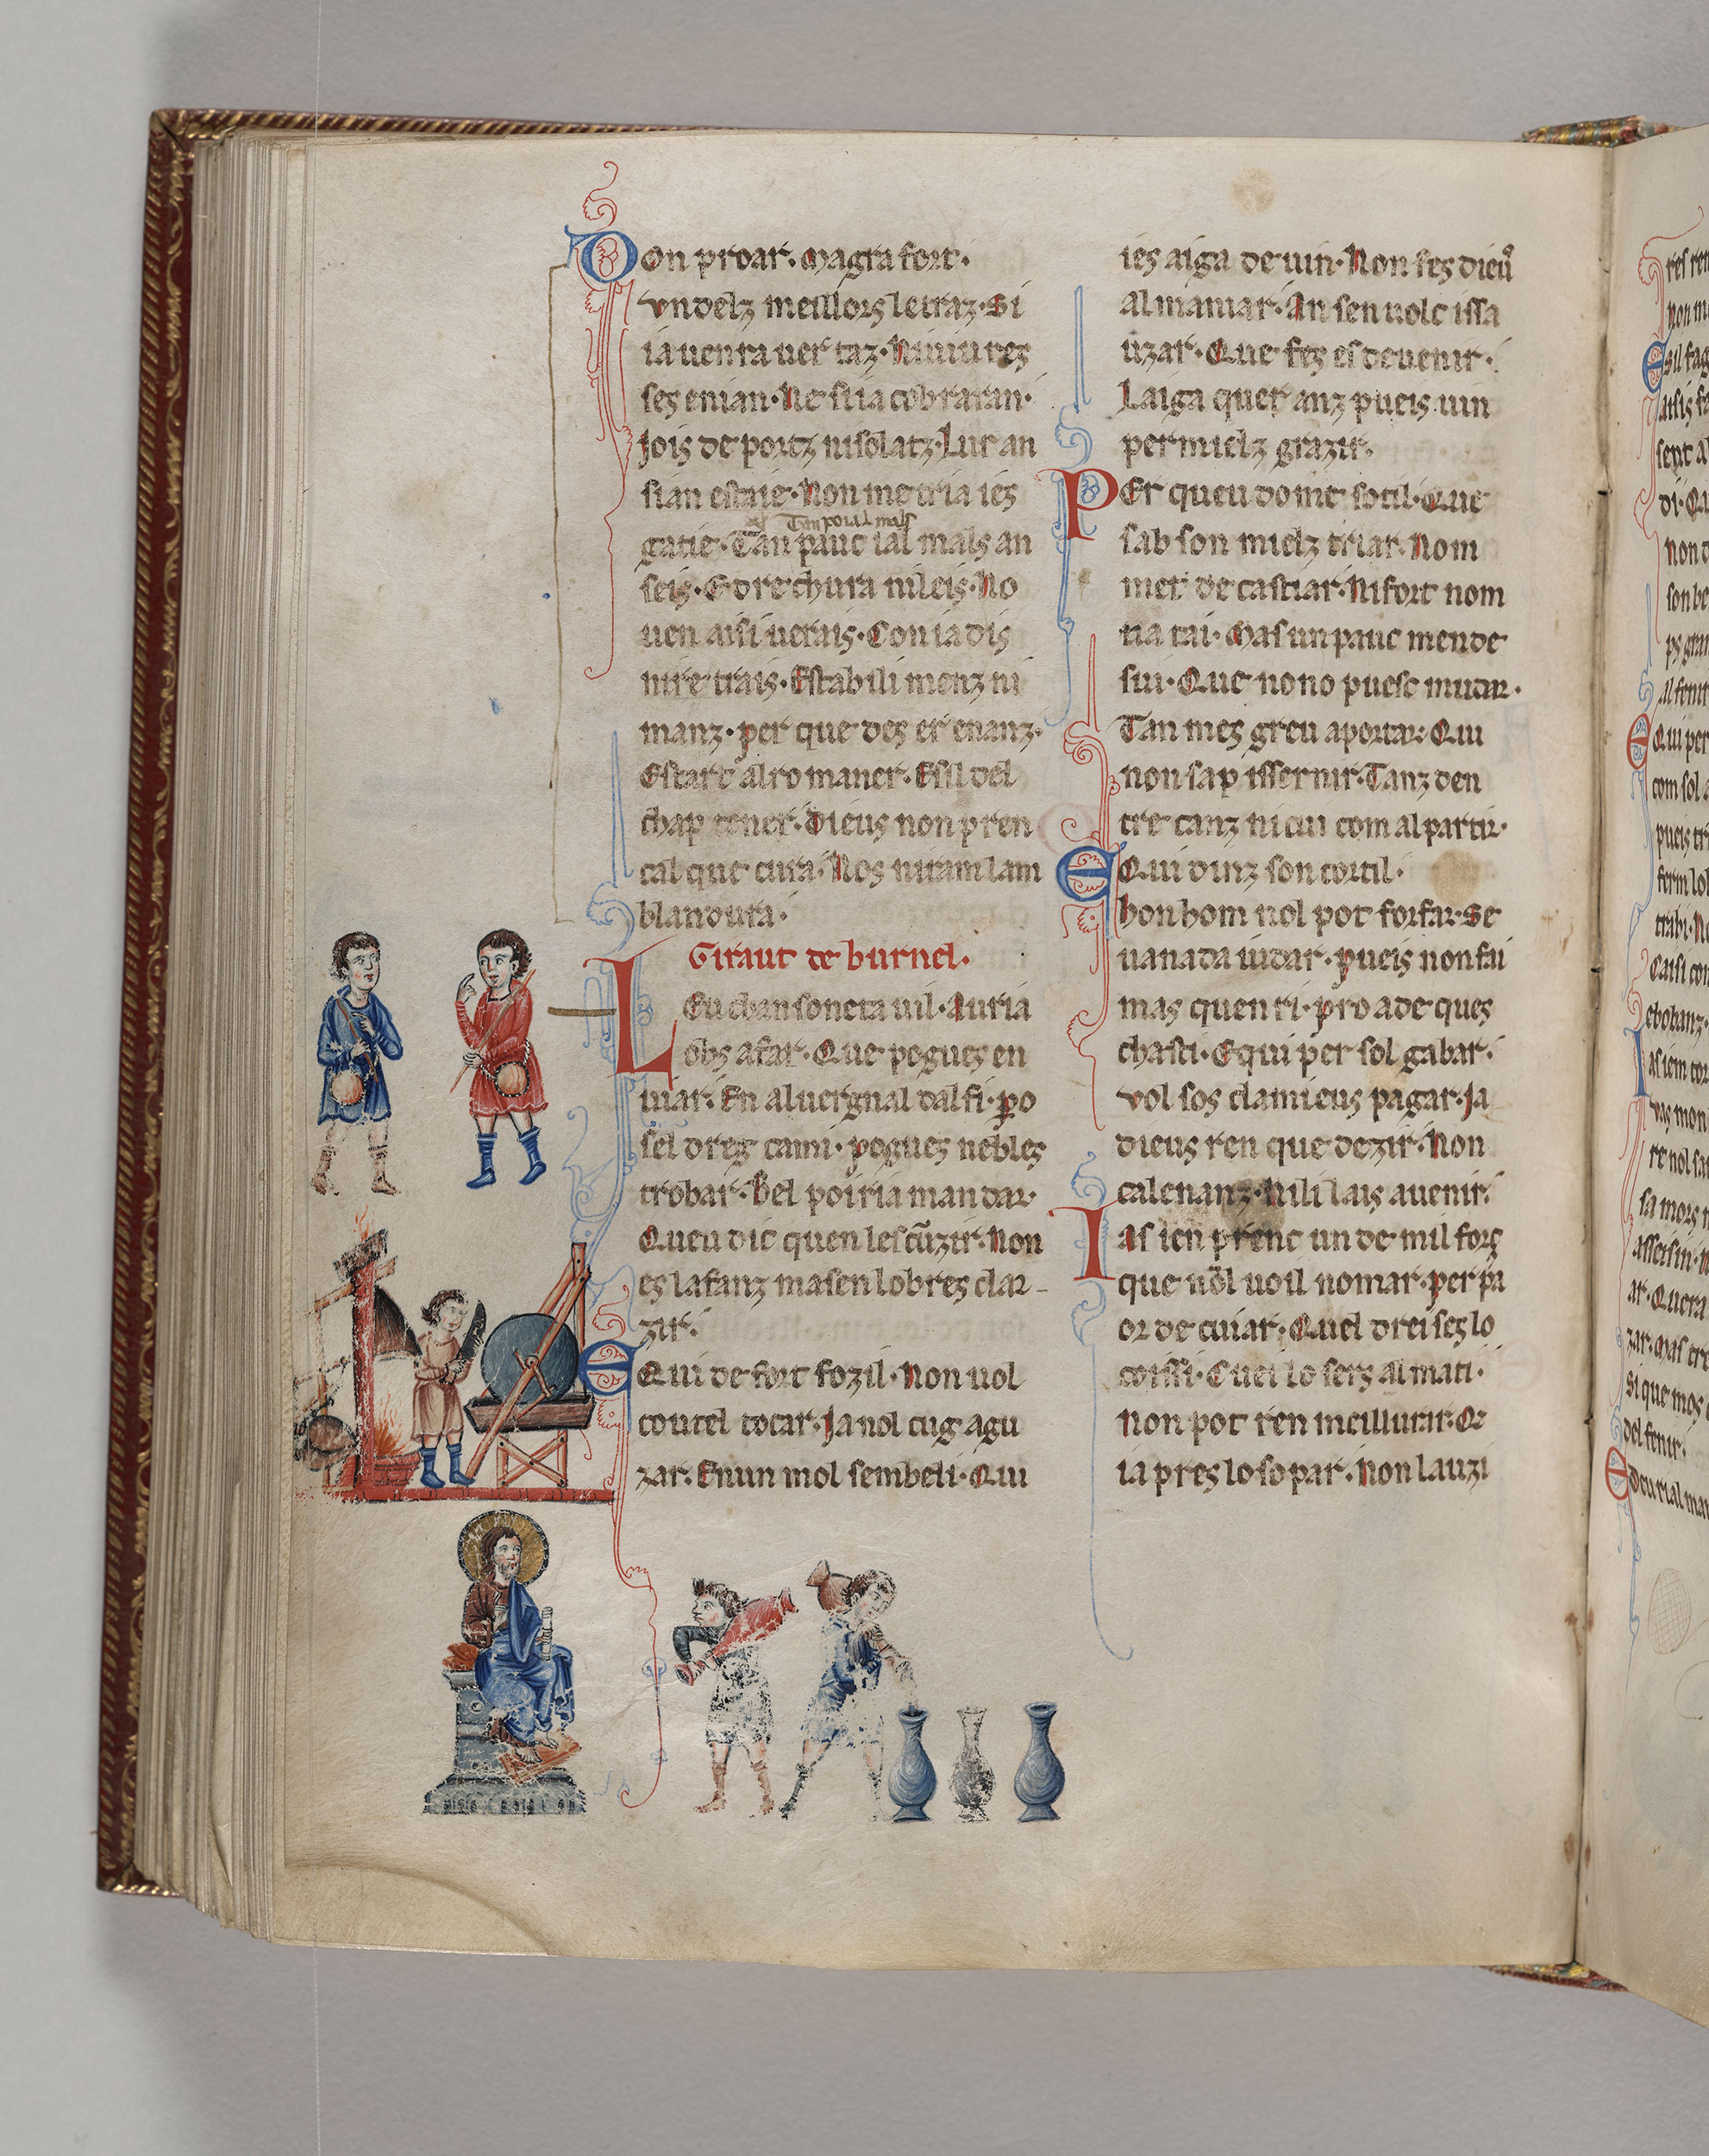 Don proar. Magra fort.
vn delz meillors letraz. Si
ia uenra uertaz. Ni uiures
ses enian. Ne si ia cobraran.
Jois de portz ni solatz. Lur an
sian estrie. Non me tria ies
Tan poial mals
gatie. Tan pauc ial mals an
seis. E drechura ni leis. No
uen aisi uerais. Con ia dis
ni retrais. Establimenz ni
manz. per que des er enanz.
Estar alro maner. E sil del
chap tener. Dieus non pren
cal que cura. Nos uiram lam
blandura.
Giraut de burnel.
Leu chansoneta uil. Auria
obs afar. Que pogues en
uiar. En aluergnal dalfi. pero
sel dreg cami. pogues nebles
trobar. Bel poiria mandar.
Queu dic quen lescurzir. Non
es lafanz mas en lobres clar-
zir.
E Qui de fort fozil. Non uol
coutel tocar. Ja nol cug agu
zar. En un mol sembeli. Qui
ies aiga de uin. Non fes dieus
al maniar. An sen uolc issa
uzar. Que fes esdeuenir.
Laiga quer anz pueis uin
per mielz grazir.
PEr queu dome sotil. Que
sab son mielz triar. Nom
met de castiar. Ni fort nom
na rai. Mas un pauc men de
sui. Que no no puesc mudar.
Tan mes greu aportar. Qui
non sap issernir. Tanz den
tre tanz ni cui com al partir.
E Qui dinz son cortil.
bon hom nol pot forfar. Se
uanada iudar. pueis non fai
mas quen ri. pro ade ques
chasti. E qui per sol gabar.
vol sos clamieus pagar. Ja
dieus ren que dezir. Non
cal enanz. Ni li lais auenir.
Ias ien prenc un de mil fors
que nol uoil nomar. per pa
or de cuiar. Quel drei ses lo
corssi. E uei lo sers al mati.
Non pot ren meillurar. Qe
ia pres lo sopar. Non lauzi